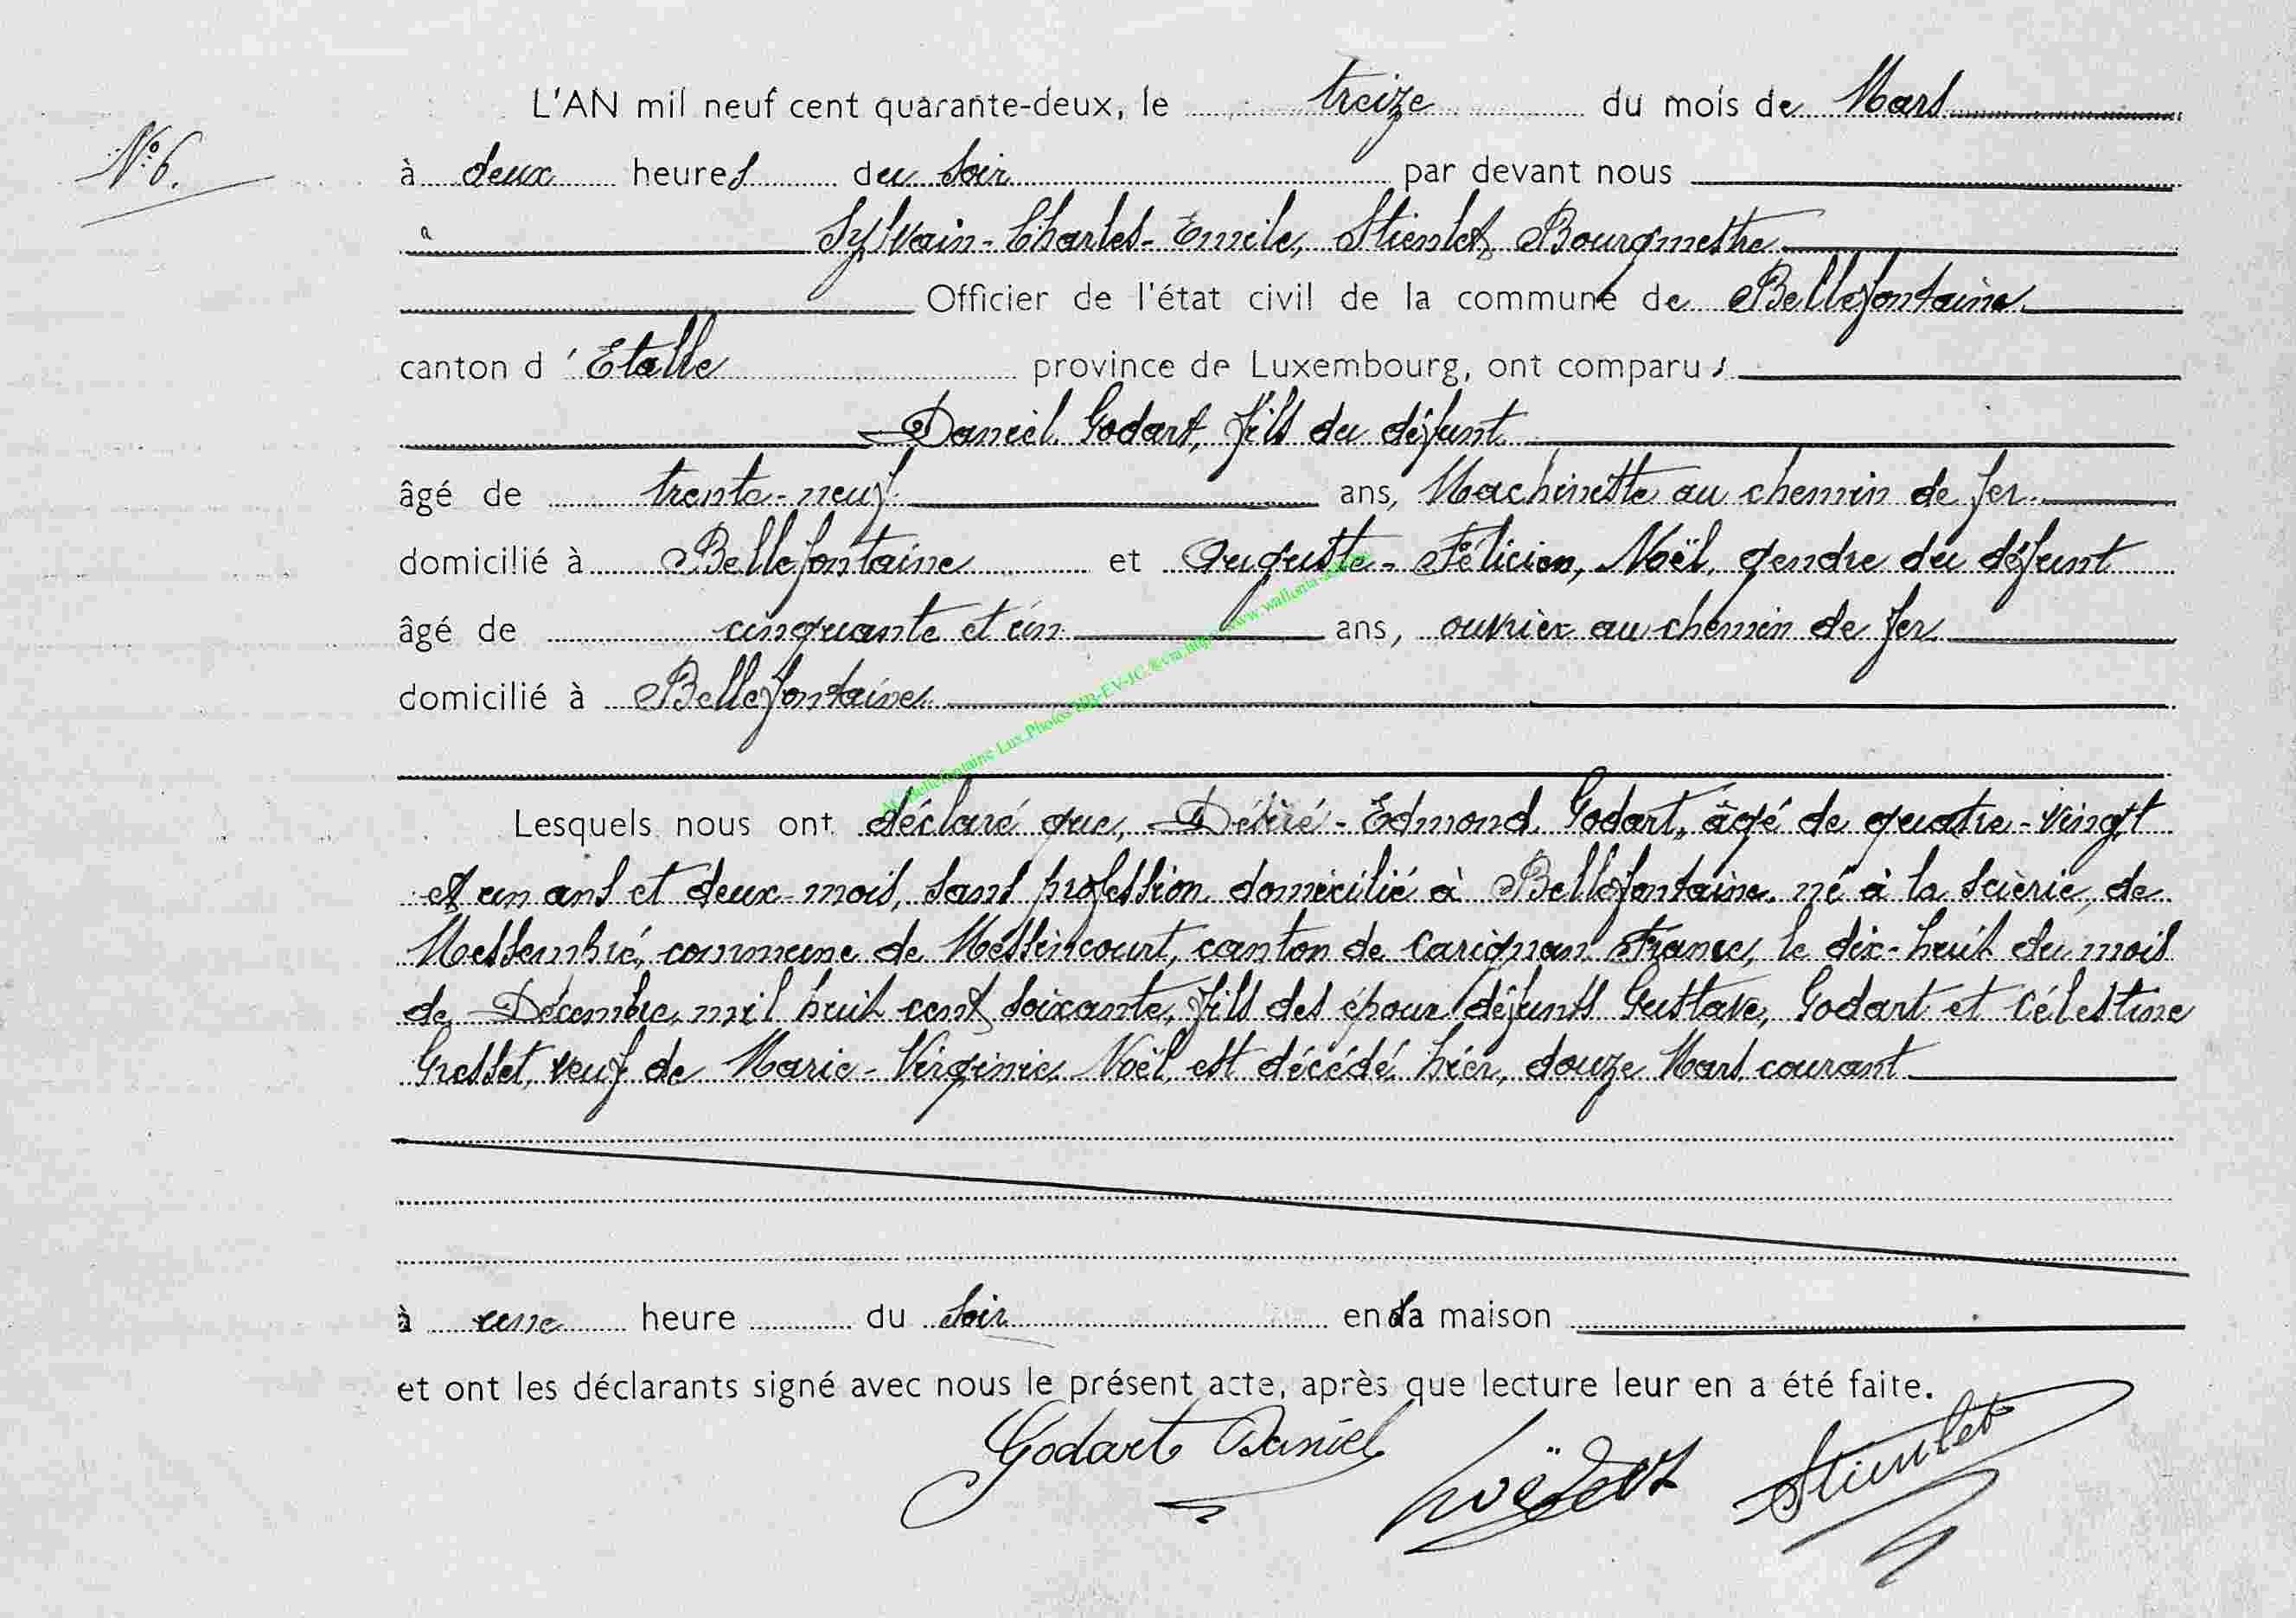 L'AN mil neuf cent quarante-deux, le treize du mois de Mars
N° 6.
à deux heures du soir par devant nous
Sylvain-Charles-Emile, Stienlet, Bourgmestre
Officier de l'état civil de la commune de Bellefontaine
canton d'Etalle province de Luxembourg, ont comparus
Daniel Godart, fils du défunt
âgé de trente-neuf ans, Machiniste au chemin de fer
domicilié à Bellefontaine et Auguste-Félicien, Noël, gendre du défunt
âgé de cinquante et un ans, ouvrier au chemin de fer
domicilié à Bellefontaine
Lesquels nous ont déclaré que, Désiré-Edmond Godart, âgé de quatre-vingt
et un ans et deux-mois, sans profession domicilié à Bellefontaine. né à la scièrie, de
Messembré, commune de Messincourt, canton de Carignan France, le dix-huit du mois
de Décembre, mil huit cent soixante, fils des époux défunts Gustave, Godart et Célestine
Gresset, veuf de Marie-Virginie Noël, est décédé hier, douze Mars courant
à une heure du soir en sa maison
et ont les déclarants signé avec nous le présent acte, après que lecture leur en a été faite.
Godart Daniel Stienlet